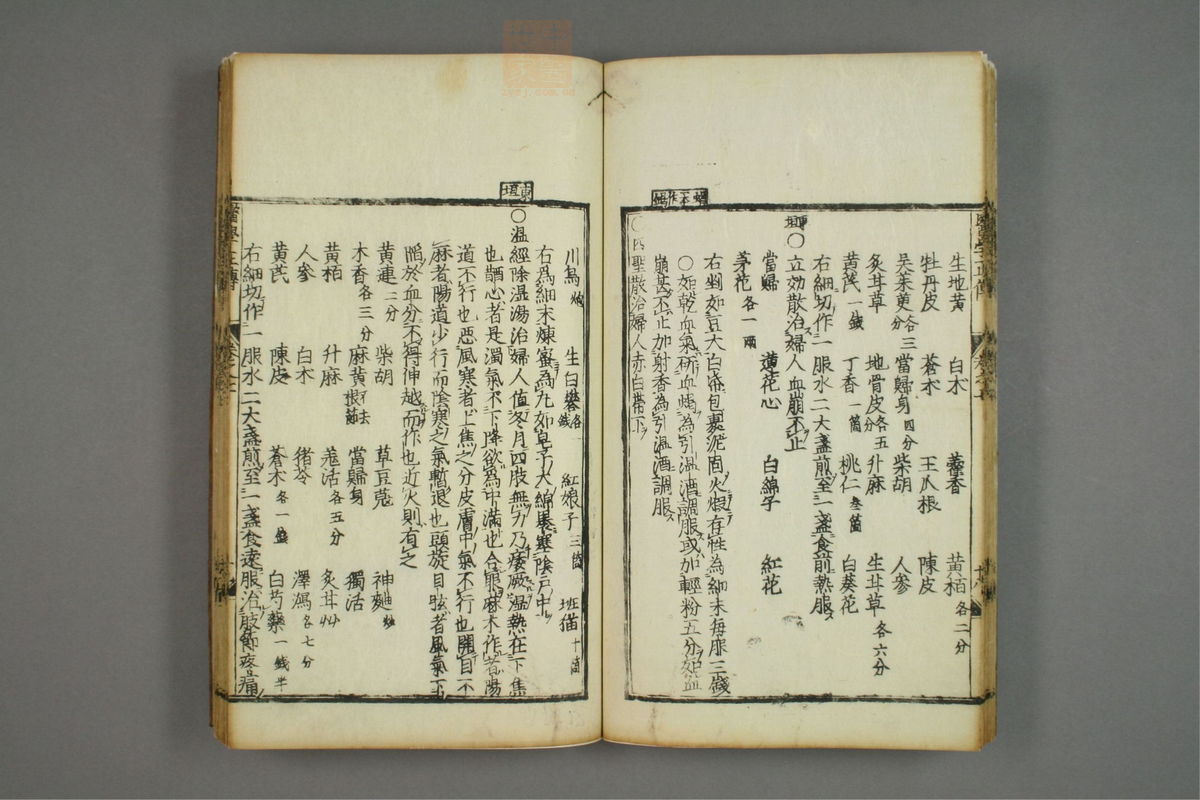 生地黄 白朮 藿香 黄栢各二分
牡丹皮 蒼朮 王瓜根 陳皮
呉茱萸各三分 當歸身四分 柴胡 人參
炙甘草 地骨皮各五分 升麻 生甘草各六分
黄茋一錢 丁香一箇 桃仁叁箇 白葵花
右細切作一服水二大盞煎至一盞食前熱服
東垣〇立効散治婦人血崩不止
當歸 蓮花心 白綿子 紅花
茅花各一兩
右剉如豆大白帋包裹泥固火煅存性為細末毎服三錢
〇如乾血氣作血竭為引温酒調服或加輕粉五分如血
崩甚不止加射香為引温酒調服
〇四聖散治婦人赤白帶下
川烏炮 生白礬各錢 紅娘子三箇 班猫十箇
右為細末煉蜜為丸如皂子大綿裹塞陰戸中
東垣
〇温經除湿湯治婦人値冬月四肢無力乃痿厥湿熱在下焦
也醋心者是濁氣不下降欲為中滿也合眼麻木作者陽
道不行也惡風寒者上焦之分皮膚中氣不行也開目不
麻者陽道少行而陰寒之氣暫退也頭旋目眩者風氣下
陷於血分不得伸越而作也近火則有之
黄連二分 柴胡 草豆蔲 神麯炒
木香各三分 麻黄去根節 當歸身 獨活
黄栢 升麻 羗活各五分 炙甘艸
人參 白朮 猪苓 澤瀉各七分
黄茋 陳皮 蒼朮各一錢 白芍藥一錢半
右細切作一服水二大盞煎至一盞食遠服治肢節疼痛
醫學正傳